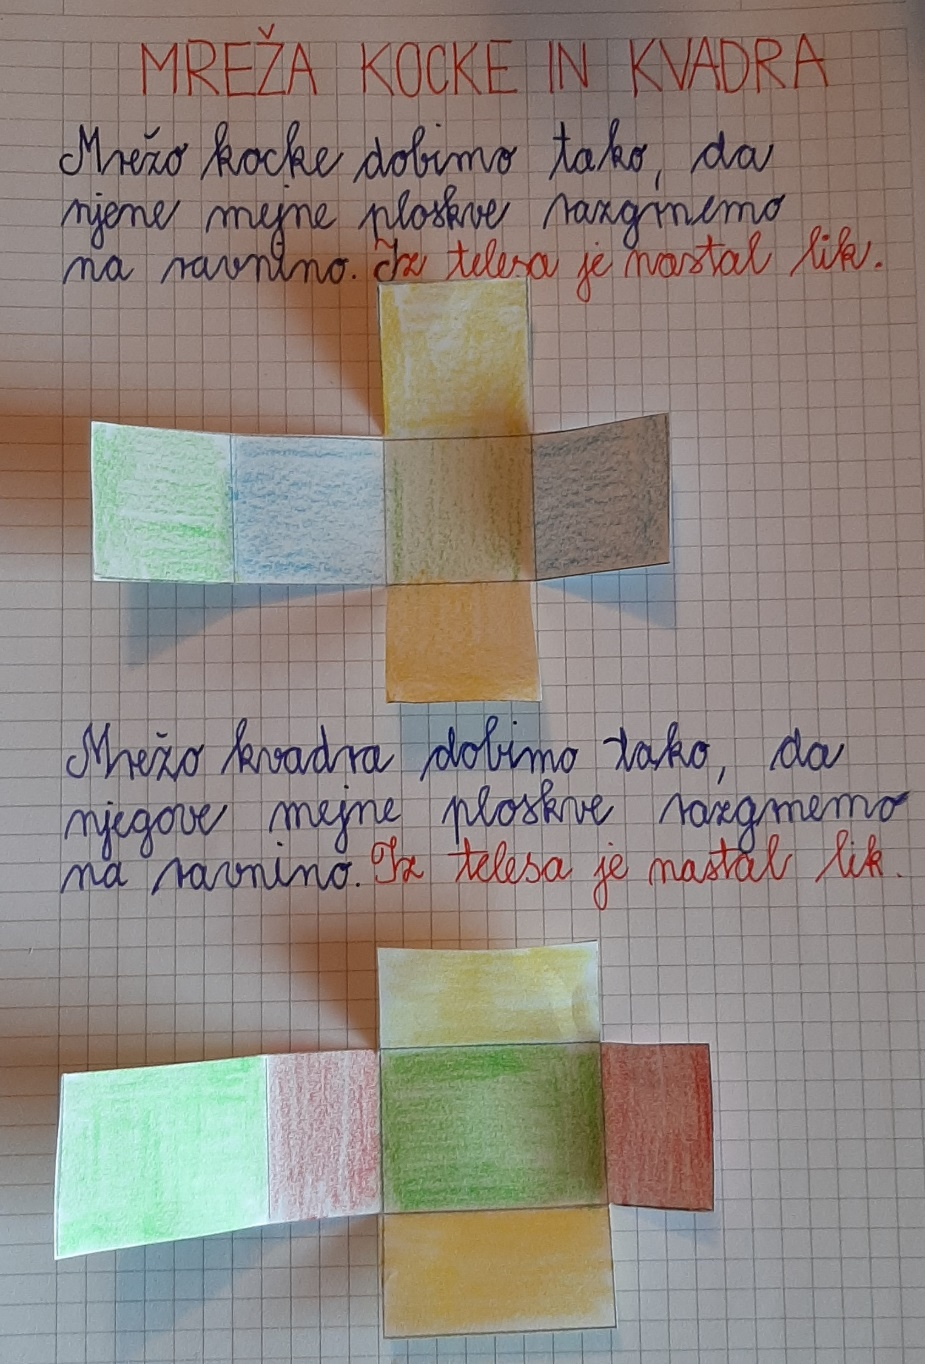 MREŽA KOCKE IN KVADRA
Mrežo kocke dobimo tako, da
njene mejne ploskve razgrnemo
na ravnino. Iz telesa je nastal lik.
Mrežo kvadra dobimo tako, da
njegove mejne ploskve razgrnemo
na ravnino. Iz telesa je nastal lik.